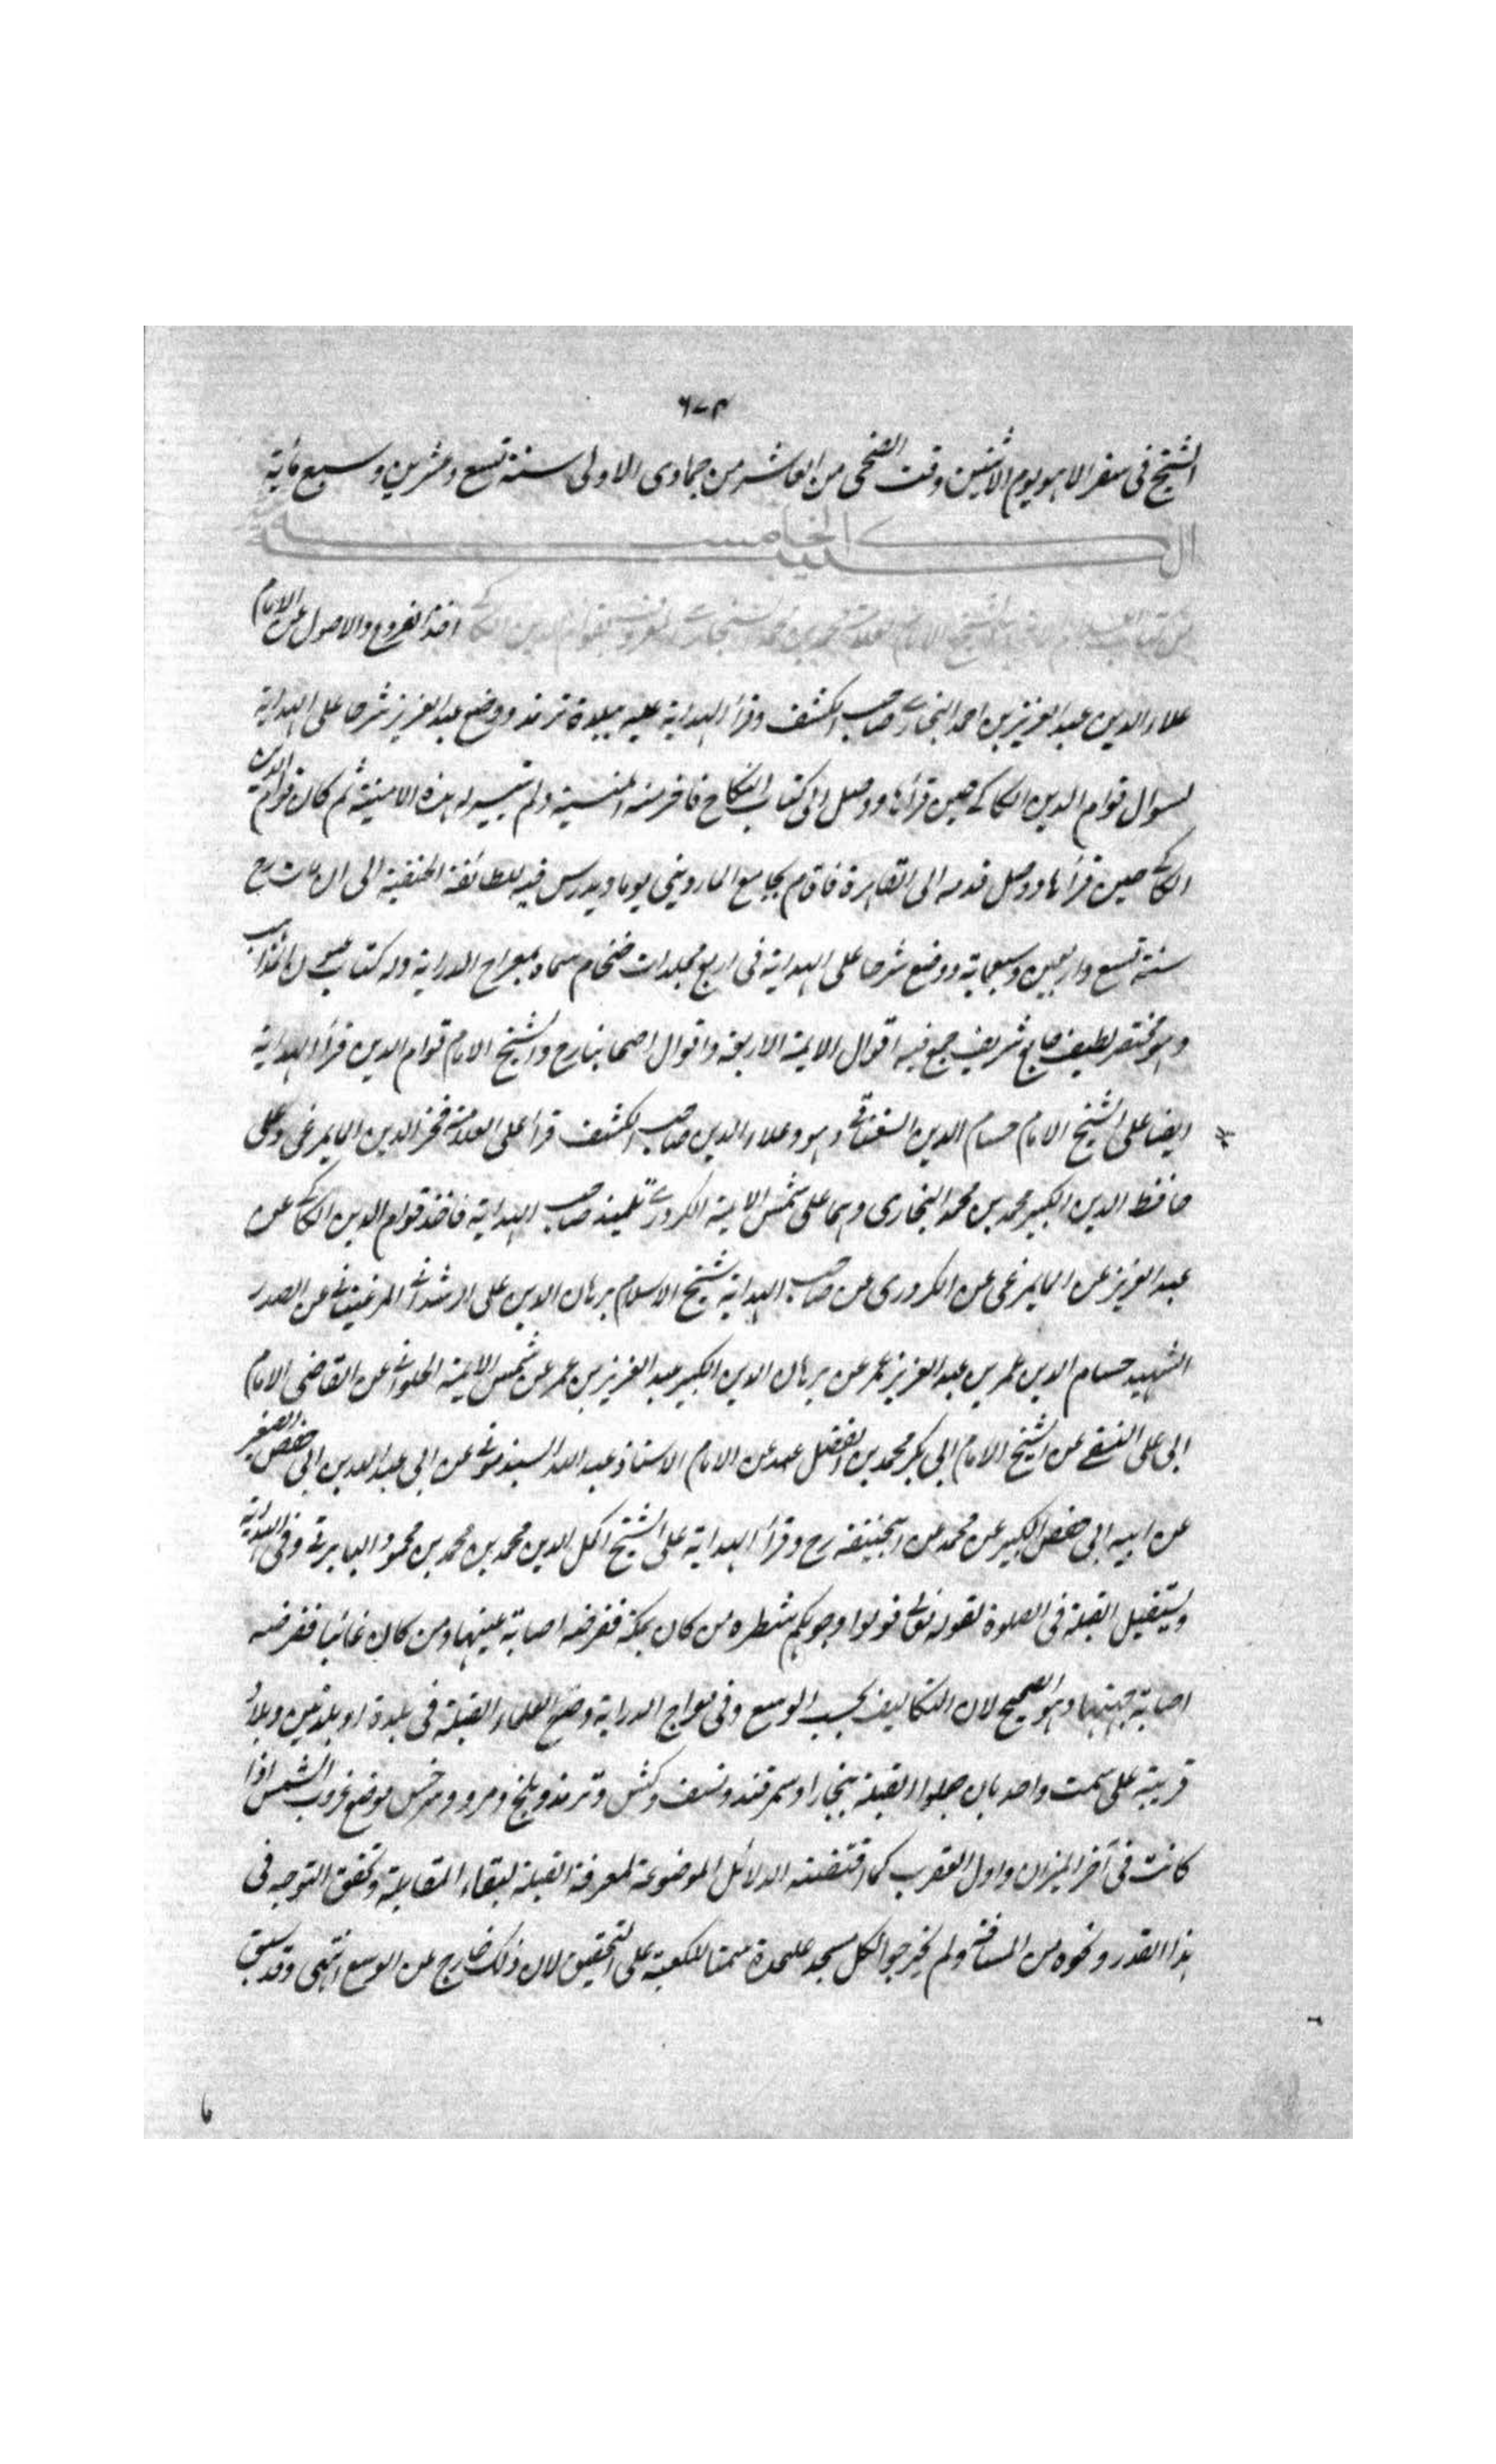 ٦٧٣
الشيخ فى سفر الاهو يوم الاثنين وقت الضحى من العاشر من جمادى الاولى سنة تسع وعشرين وسبع ماية
الخامسة
الشيخ الامام محمد بن محمد المعروف بقوام الدين الكاكى اخذ الفروع والاصول عن الامام
علاء الدين عبد العزيز بن احمد البخارى صاحب الكشف وقرأ الهداية عليه ببلدة ترمذ ووضع عبد العزيز شرحا على الهداية
لسوال قوام الدين الكاكى حين قرأها ووصل الى كتاب النكاح فاخرمته المنية ولم تيسر له هذه الامنية ثم كان قوام الدين
الكاكى حين قرأها ووصل قدمه الى القاهرة فاقام بجامع الماردينى يوما ويدرس فيه للطائفة الحنفية الى ان مات رح
سنة تسع واربعين وسبعماية ووضع شرحا على الهداية فى اربع مجلدات ضخام سماه معراج الدراية وله كتاب عيون المذاهب
وهو مختصر لطيف جامع شريف جمع فيه اقوال الايمة الاربعة واقوال اصحابنا رح والشيخ الامام قوام الدين قرأ الهداية
ايضا على الشيخ الامام حسام الدين السغناقى وهو وعلاء الدين صاحب الكشف قرأ على العلامة فخر الدين المايمرغى وعلى
حافظ الدين الكبير محمد بن محمد البخارى وهما على شمس الايمة الكردرى تلميذ صاحب الهداية فاخذ قوام الدين الكاكى عن
عبد العزيز عن المايمرغى عن الكردرى عن صاحب الهداية شيخ الاسلام برهان الدين على الرشدانى المرغينانى عن الصدر
الشهيد حسام الدين عمر بن عبد العزيز عمر عن برهان الدين الكبير عبد العزيز بن عمر عن شمس الايمة الحلوانى عن القاضى الامام
ابى على النسفى عن الشيخ الامام ابى بكر محمد بن الفضل عن الامام الاستاذ عبد الله السبذمونى عن ابى عبد الله بن ابى حفص الصغير
عن ابيه ابى حفص الكبير عن محمد عن ابيحنيفة رح وقرأ الهداية على الشيخ اكمل الدين محمد بن محمد بن محمود البابرتى وفى الهداية
ويستقبل القبلة فى الصلوة لقوله تعالى فولوا وجوهكم شطره من كان بمكة ففرضه اصابة عينها ومن كان غائبا ففرضه
اصابة جهتها وهو الصحيح لان التكاليف بحسب الوسع وفى معراج الدراية وضع العلماء القبلة فى بلدة او بلدتين وبلاد
قريبة على سمت واحد بان جعلوا القبلة ببخارا وسمرقند ونسف وكش وترمذ وبلخ ومرو وسرخس موضع غروب الشمس اذا
كانت فى آخر الميزان واول العقرب كما اقتضته الدلائل الموضوعة لمعرفة القبلة لبقاء المقابلة وتحقق التوجه فى
هذا القدر ونحوه من المسافة ولم يخرجوا لكل مسجد علىحدة سمتا للكعبة على التحقيق لان ذلك خارج عن الوسع انتهى وقد سبق
ما